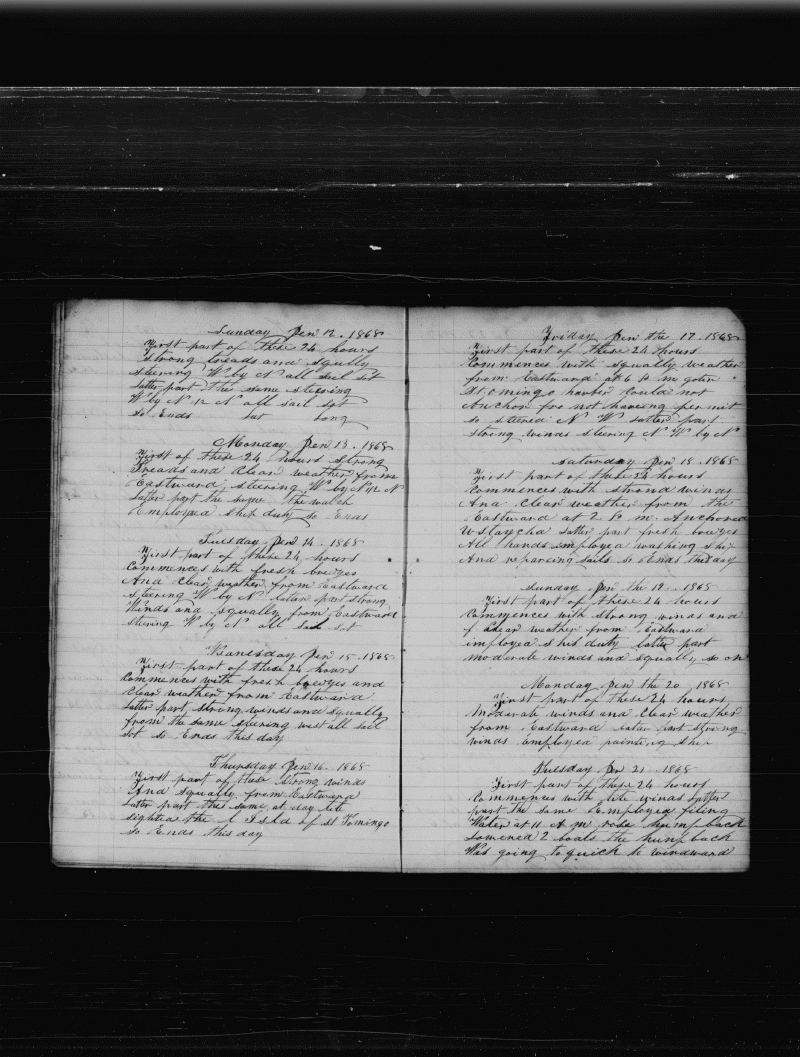 Sunday Jen 12 . 1868
First part of these 24 hours
strong treads and sqully
steering W by N all sail set
Latter part the same steering
W by N 1/2 N all sail set
so Ends Lat Long
Monday Jen 13 . 1868
First of these 24 hours strong
Treads and Clear weather from
Eastward, steering W by N 1/2 N
Latter part the same the watch
Employed ship duty so Ends
Tuesday Jen 14 . 1868
First part of these 24 hours
Commences with fresh breezes
And Clear weather from Eastward
steering W by N later part strong
Winds and squally from Eastward
steering W by N all sail set
Wednesday Jen 15 . 1868
First part of these 24 hours
Commences with fresh breezes and
Clear weather from Eastward
Latter part strong winds and squally
from the same steering west all sail
set so Ends this day
Thursday Jen 16 . 1868
First part of these strong winds
And squally from Eastward
Latter part the same at day lite
sighted the Isld of st Domingo
so Ends this day
Friday Jen the 17 . 1868
First part of these 24 hours
Commences with squally weather
from Eastward at 6 P m
St Comingo harber Could not
Anchor fro not haveing permit
so steered N W Latter part
strong winds steering N W by N
Saturday Jen 18 . 1868
First part of these 24 hours
Commences with strond winds
And Clear weather from the
Eastward at 2 P m . Anchored
Latter part fresh breezes
All hands employed washing ship
And reparcing sails so Ends this day
Sunday Jen the 19 . 1868
First part of these 24 hours
Commences with strong winds and
Clear weather from Eastward
imployed ship duty latter part
moderate winds and squally so on
Monday Jen the 20 . 1868
First part of these 24 hours
Moderate winds and Clear weather
from Eastward Later part strong
winds employed painting ship
Tuesday Jen 21 . 1868
First part of these 24 hours
Commences with lite winds Latter
part the same Employed filing
Water at 11 A m rose hump back
Lowered 2 boats the hump back
Was going to quick to windward